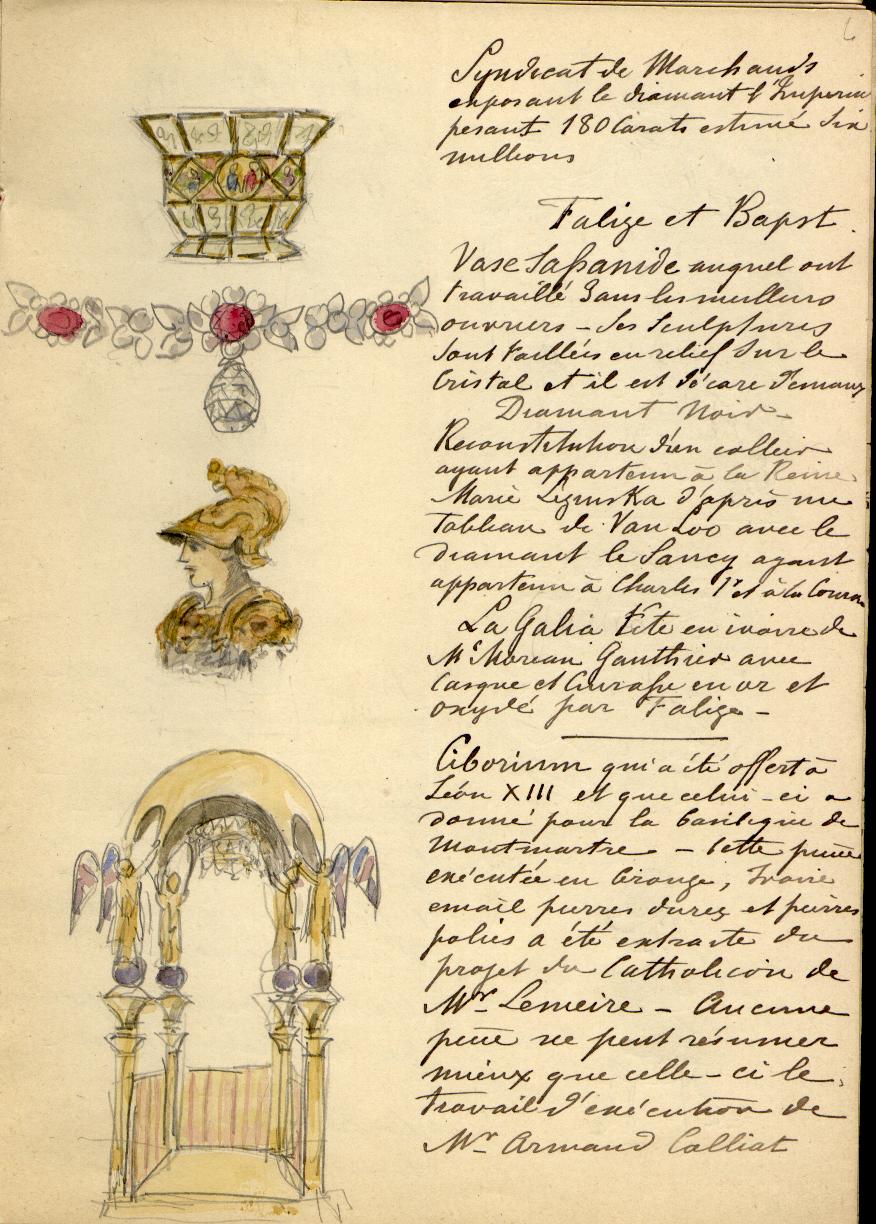 6
Syndicat de Marchands
exposant le diamant l'Imperia
pesant 180 Carats estimé Six
millions
Falize et Bapst.
Vase Sassanide auquel ont
travaillé dans les meilleurs
ouvriers - Les Sculptures
sont taillées en relief sur le
Cristal et il est décoré d'emaux
Diamant Noir
Reconstitution d'un collier
ayant appartenu à la Reine
Marie Leginska d'après un
tableau de Van Loo avec le
diamant le Sancy ayant
appartenu à Charles 1er et à la Couron
La Galia Tête en ivoire de
Mr Moreau Gauthier avec
Casque et Cuirasse en or et
oxydé par Falize -
Ciborium qui a été offert à
Léon XIII et que celui-ci a
donné pour la basilique de
Montmartre - Cette pièce
exécutée en bronze, Ivoire
email pierres dures et pierres
polies a été extraite du
projet du Catholicon de
Mr Lemeire - Aucune
pièce ne peut résumer
mieux que celle-ci le
travail d'exécution de
Mr Armand Calliat